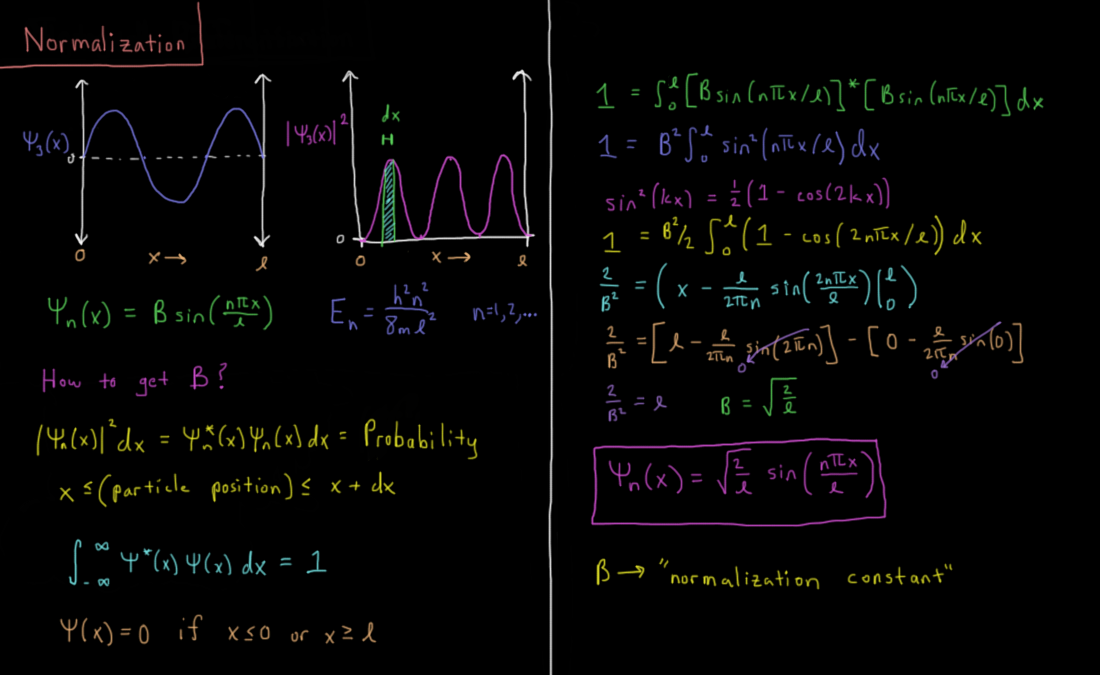 Normalization
Ψ₃(x)
0
0 x→ ℓ
|Ψ₃(x)|²
dx
0
0 x→ ℓ
Ψₙ(x) = B sin(nπx/ℓ)
Eₙ = h²n²/8mℓ² n=1,2,...
How to get B?
|Ψₙ(x)|²dx = Ψₙ*(x)Ψₙ(x)dx = Probability
x ≤ (particle position) ≤ x + dx
∫₋∞^∞ Ψ*(x)Ψ(x) dx = 1
Ψ(x)=0 if x≤0 or x≥ℓ
1 = ∫₀^ℓ [B sin(nπx/ℓ)]*[B sin(nπx/ℓ)]dx
1 = B²∫₀^ℓ sin²(nπx/ℓ)dx
sin²(kx) = ½(1 - cos(2kx))
1 = B²/2 ∫₀^ℓ (1 - cos(2nπx/ℓ))dx
2/B² = (x - ℓ/2πn sin(2nπx/ℓ)|₀^ℓ)
2/B² = [ℓ - ℓ/2πn sin(2πn)] - [0 - ℓ/2πn sin(0)]
0 0
2/B² = ℓ B = √(2/ℓ)
Ψₙ(x) = √(2/ℓ) sin(nπx/ℓ)
B → "normalization constant"